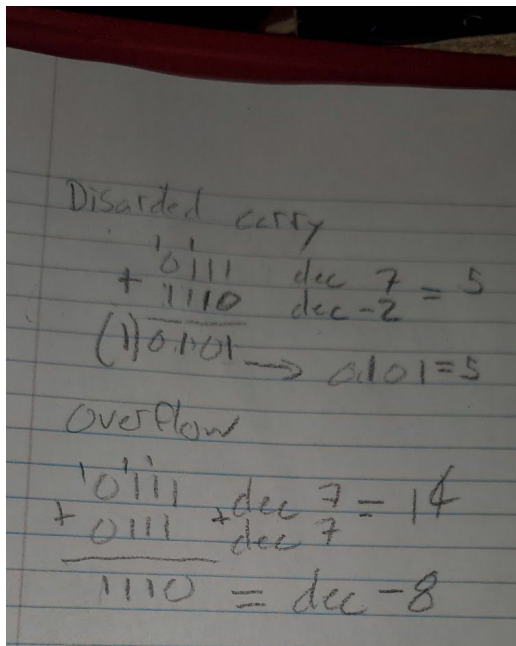 Disarded carry
1 1
0111 dec 7 = 5
+ 1110 dec -2
(1)0101 → 0101=5
Overflow
1 1 1
0111 + dec 7 = 14
+ 0111 dec 7
1110 = dec -8